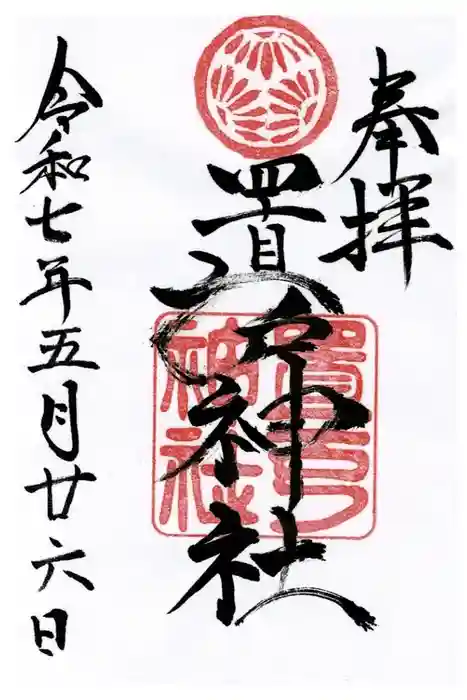 奉拝
置神社
令和七年五月廿六日
神社